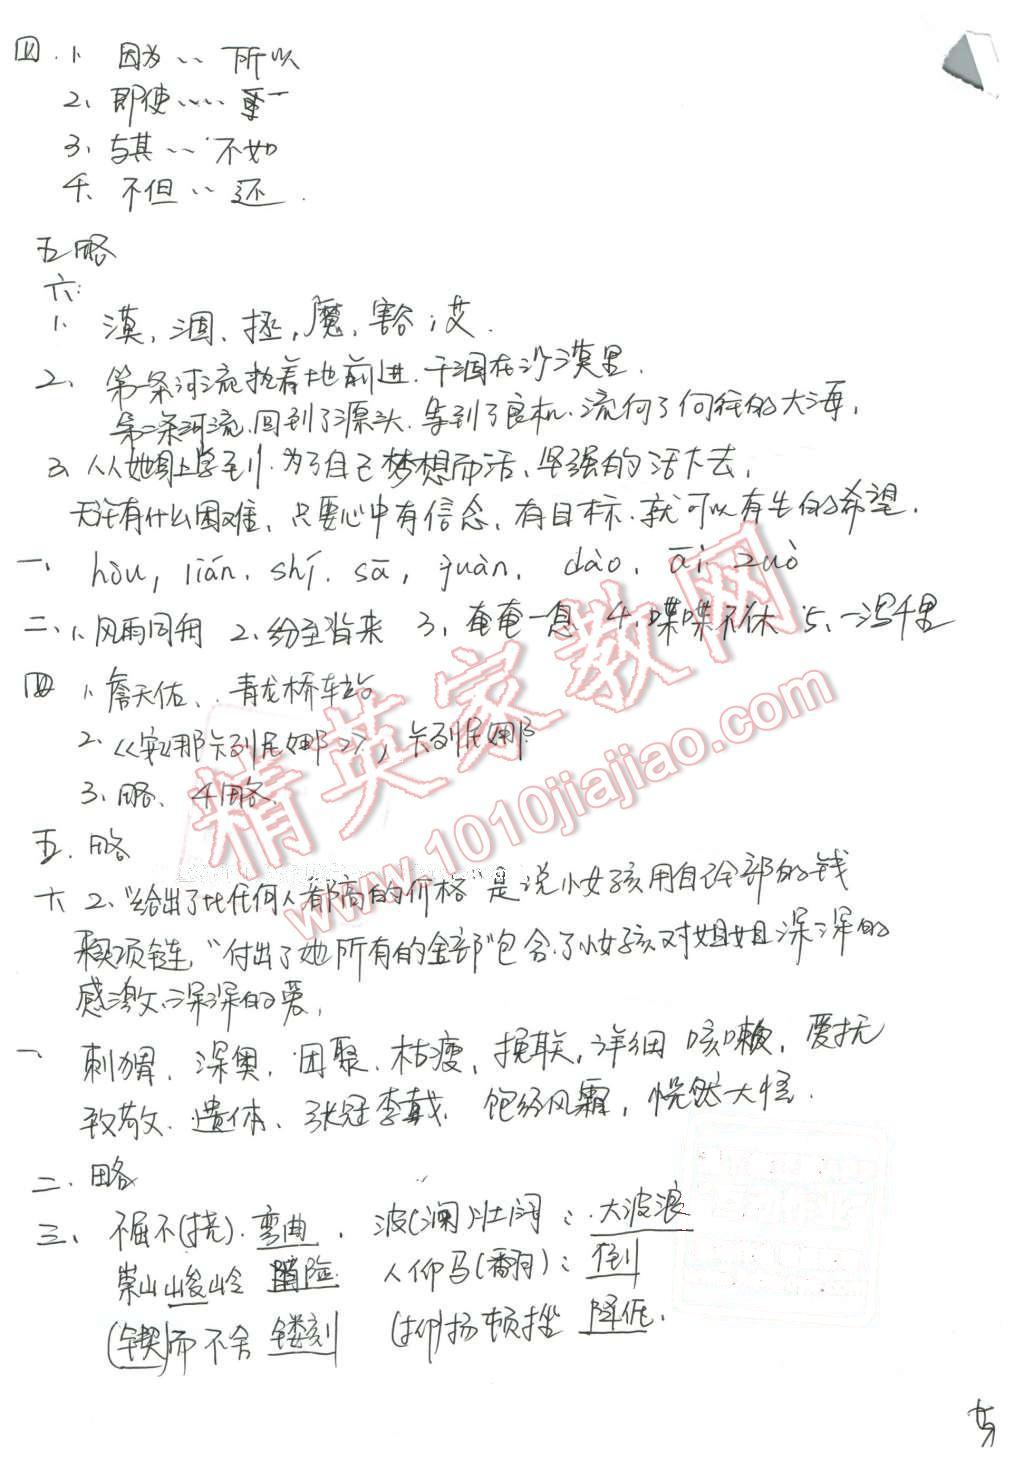 四. 1、因为…所以
2、即使……
3、与其…不如
4、不但…还.
五略
六:
1、漠,涸、拯,魔、豁;艾.
2、第一条河流执着地前进.干涸在沙漠里.
第二条河流.回到了源头.等到了良机.流向了向往的大海,
3、从她身上学到.为了自己梦想而活.坚强的活下去,
无论有什么困难,只要心中有信念,有目标.就可以有生的希望.
一、hòu, lián. shí. sā, juàn. dào. āi zuò
二、1.风雨同舟 2、纷至沓来 3、奄奄一息 4.喋喋不休 5、一泻千里
四 1、詹天佑、青龙桥车站
2、《安娜·卡列尼娜》,卡列尼娜
3、略、4略.
五.略
六 2、"给出了比任何人都高的价格"是说小女孩用自己全部的钱
买项链,"付出了她所有的全部"包含了小女孩对姐姐深深的
感激、深深的爱,
一、刺猬,深奥,团聚.枯瘦,挽联,详细 咳嗽,爱抚
致敬.遗体、张冠李戴.饱经风霜,恍然大悟.
二.略
三、不屈不(挠).弯曲. 波(澜)壮阔:大波浪
崇山峻岭 人仰马(翻):倒
(锲)而不舍 镂刻 (抑)扬顿挫 降低.
精英家教网
www.1010jiajiao.com